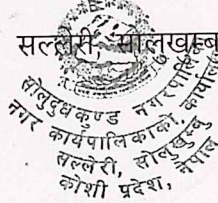 सल्लेरी, सोलुखुम्बु
सोलुदुधकुण्ड नगरपालिका
नगर कार्यपालिकाको कार्यालय
सल्लेरी, सोलुखुम्बु
कोशी प्रदेश, नेपाल